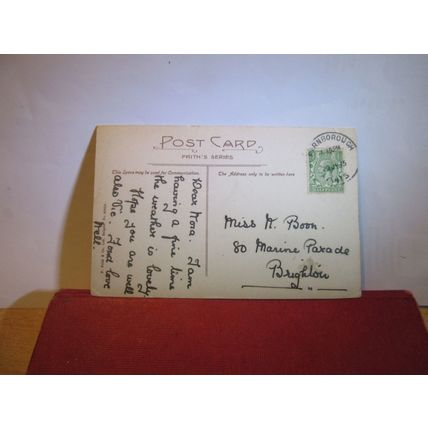 POST CARD
FRITH'S SERIES
This Space may be used for Communication.
The Address only to be written here
Dear Nora. I am
having a fine time
the weather is lovely
I
Hope you are well
also Vic. Fond love
Nell.
Miss N. Boon.
80 Marine Parade
Brighton
RNBOROUGH
13